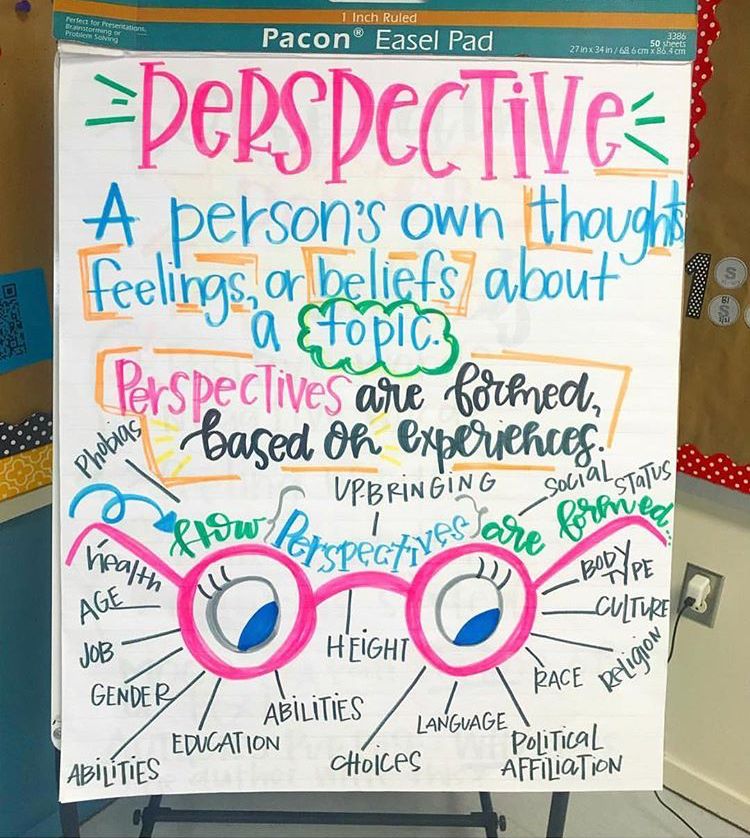 1 Inch Ruled
Perfect for Presentations,
Brainstorming or
Problem Solving
Pacon® Easel Pad
3386
50 sheets
27 in x 34 in / 68.6 cm x 86.4 cm
PERSPECTIVE
A person's own thoughts
feelings, or beliefs about
a topic.
Perspectives are formed,
based on experiences.
Phobias
UPBRINGING
SOCIAL STATUS
How {Perspectives} are formed...
Health
BODY TYPE
AGE
CULTURE
JOB
HEIGHT
RELIGION
GENDER
RACE
ABILITIES
LANGUAGE
EDUCATION
POLITICAL
AFFILIATION
ABILITIES
CHOICES
1
S